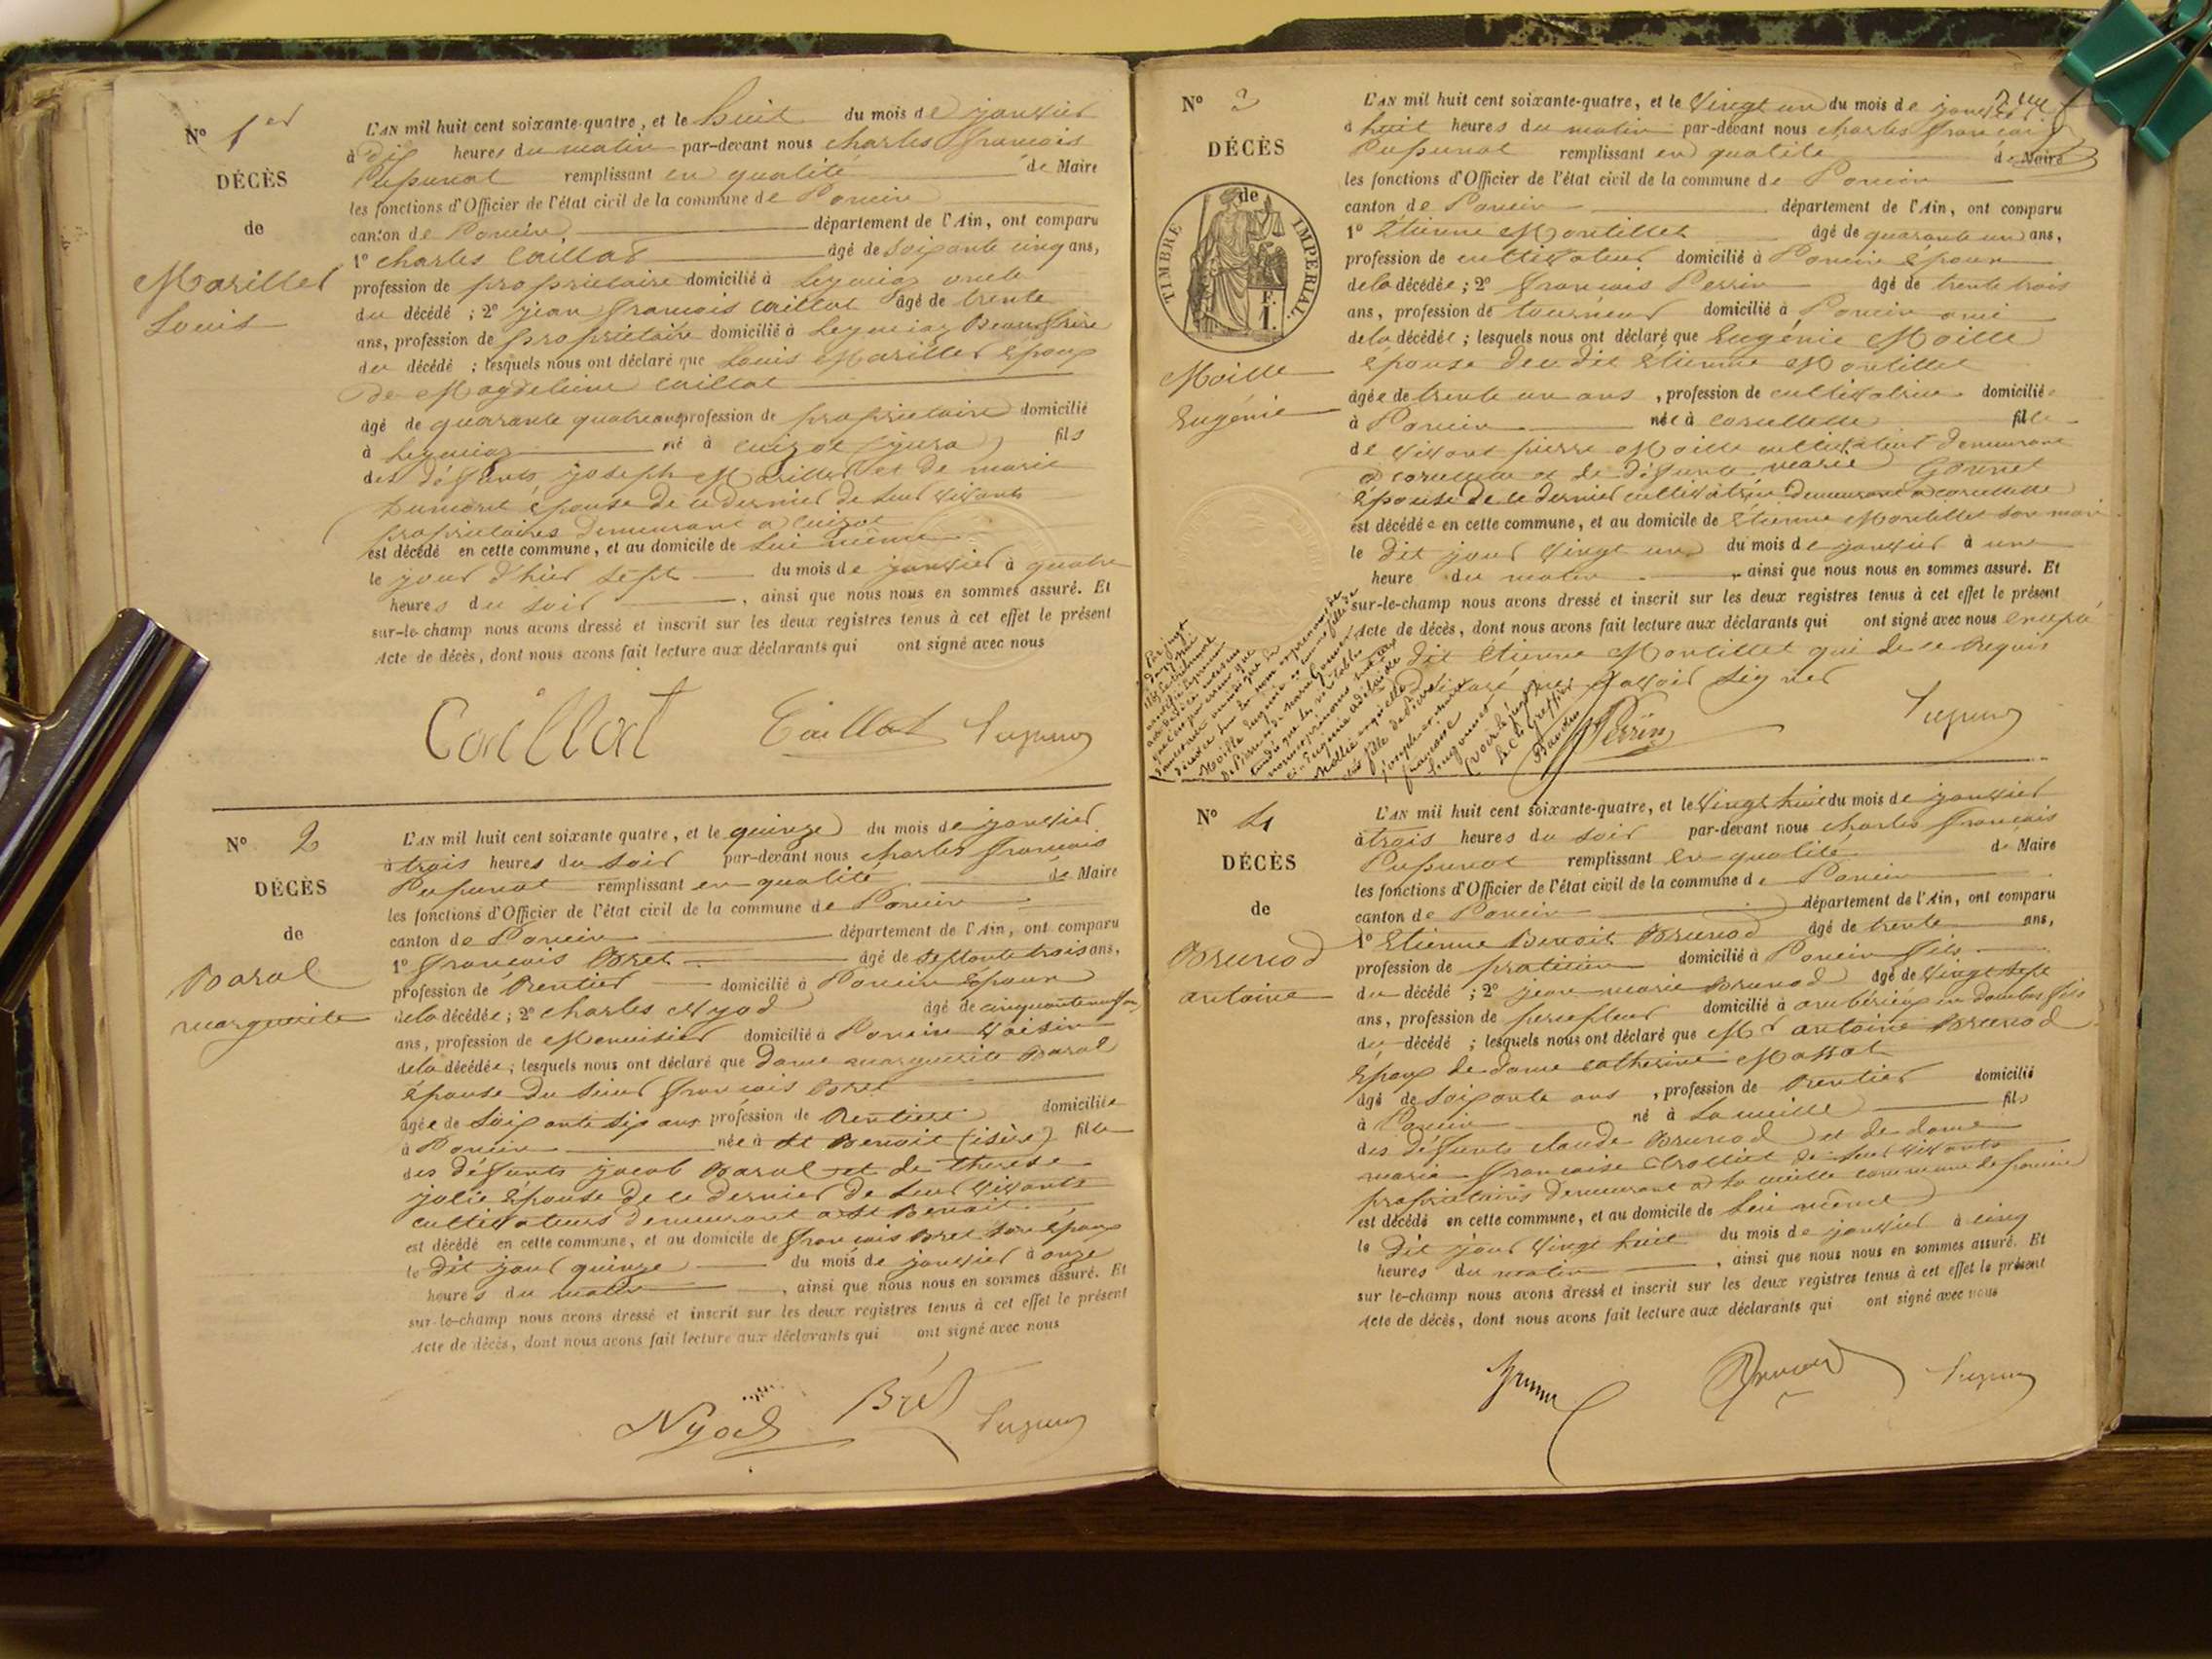 N° 1er
DÉCÈS
de
Marillet
Louis
L'AN mil huit cent soixante-quatre, et le huit du mois de janvier
à dix heures du matin par-devant nous charles françois
Pupunat remplissant en qualité de Maire
les fonctions d'Officier de l'état civil de la commune de Poncin
canton de Poncin département de l'Ain, ont comparu
1° charles Caillat âgé de soixante cinq ans,
profession de propriétaire domicilié à Leymiaz oncle
du décédé ; 2° jean françois caillat âgé de trente
ans, profession de propriétaire domicilié à Leymiaz Beau frère
du décédé ; lesquels nous ont déclaré que Louis Marillet époux
de Magdeleine caillat
âgé de quarante quatre ans profession de propriétaire domicilié
à Leymiaz né à cuizat (jura) fils
des défunts joseph Marillet et de marie
Dumont épouse de ce dernier de leur vivants
propriétaires demeurant à cuizat
est décédé en cette commune, et au domicile de lui même
le jour d'hier sept du mois de janvier à quatre
heures du soir, ainsi que nous nous en sommes assuré. Et
sur-le-champ nous avons dressé et inscrit sur les deux registres tenus à cet effet le présent
Acte de décès, dont nous avons fait lecture aux déclarants qui ont signé avec nous
Caillat Caillat Pupunat
N° 2
DÉCÈS
de
Baral
marguerite
L'AN mil huit cent soixante quatre, et le quinze du mois de janvier
à trois heures du soir par-devant nous charles françois
Pupunat remplissant en qualité de Maire
les fonctions d'Officier de l'état civil de la commune de Poncin
canton de Poncin département de l'Ain, ont comparu
1° françois Bret âgé de septante trois ans,
profession de Rentier domicilié à Poncin Epoux
de la décédée ; 2° charles Nyod âgé de cinquante neuf
ans, profession de Menuisier domicilié à Poncin voisin
de la décédée ; lesquels nous ont déclaré que dame marguerite Baral
épouse du sieur françois Bret
âgée de soixante six ans profession de Rentière domiciliée
à Poncin née à St Benoit (isère) fille
des défunts jacob Baral et de thérèse
jolie épouse de ce dernier de leur vivants
cultivateurs demeurant à St Benoit
est décédé en cette commune, et au domicile de françois Bret son époux
le dit jour quinze du mois de janvier à onze
heures du matin, ainsi que nous nous en sommes assuré. Et
sur-le-champ nous avons dressé et inscrit sur les deux registres tenus à cet effet le présent
Acte de décès, dont nous avons fait lecture aux déclarants qui ont signé avec nous
Nyod Bret Pupunat
N° 3
DÉCÈS
de
TIMBRE IMPERIAL
F.
1.
Moille
Eugénie
L'AN mil huit cent soixante-quatre, et le vingt un du mois de janvier
à huit heures du matin par-devant nous charles françois
Pupunat remplissant en qualité de Maire
les fonctions d'Officier de l'état civil de la commune de Poncin
canton de Poncin département de l'Ain, ont comparu
1° Etienne Montillet âgé de quarante un ans,
profession de cultivateur domicilié à Poncin époux
de la décédée ; 2° françois Perrin âgé de trente trois
ans, profession de tourneur domicilié à Poncin ami
de la décédée ; lesquels nous ont déclaré que Eugénie Moille
épouse du dit Etienne Montillet
âgée de trente un ans, profession de cultivatrice domicilié
à Poncin née à corcellette fille
de vivant pierre Moille cultivateur demeurant
à corcellette et de défunte marie Gounet
épouse de ce dernier cultivatrice demeurant à corcellette
est décédée en cette commune, et au domicile de Etienne Montillet son mari
le dit jour vingt un du mois de janvier à une
heure du matin, ainsi que nous nous en sommes assuré. Et
sur-le-champ nous avons dressé et inscrit sur les deux registres tenus à cet effet le présent
Acte de décès, dont nous avons fait lecture aux déclarants qui ont signé avec nous excepté
dit Etienne Montillet qui de ce Requis
a Déclaré ne savoir signer
Perrin Pupunat
N° 4
DÉCÈS
de
Brunod
antoine
L'AN mil huit cent soixante-quatre, et le vingt huit du mois de janvier
à trois heures du soir par-devant nous charles françois
Pupunat remplissant en qualité de Maire
les fonctions d'Officier de l'état civil de la commune de Poncin
canton de Poncin département de l'Ain, ont comparu
1° Etienne Benoit Brunod âgé de trente ans,
profession de praticien domicilié à Poncin fils
du décédé ; 2° jean marie Brunod âgé de vingt sept
ans, profession de percepteur domicilié à ambérieux en dombes fils
du décédé ; lesquels nous ont déclaré que Mr antoine Brunod
Epoux de dame catherine Massat
âgé de soixante ans, profession de Rentier domicilié
à Poncin né à La meille fils
des défunts claude Brunod et de dame
marie françoise trolliet de leur vivants
propriétaires demeurant à la meille commune de poncin
est décédé en cette commune, et au domicile de lui même
le dit jour vingt huit du mois de janvier à cinq
heures du matin, ainsi que nous nous en sommes assuré. Et
sur le-champ nous avons dressé et inscrit sur les deux registres tenus à cet effet le présent
Acte de décès, dont nous avons fait lecture aux déclarants qui ont signé avec nous
Brunod Pupunat